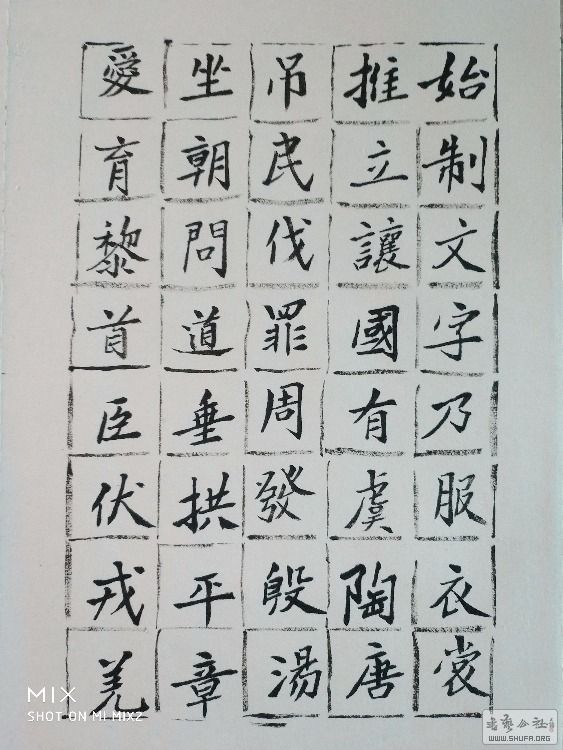 始制文字乃服衣裳
推立讓國有虞陶唐
吊民伐罪周發殷湯
坐朝問道垂拱平章
愛育黎首臣伏戎羌
MIX
SHOT ON MI MIX2
書藝公社
WWW.SHUFA.ORG